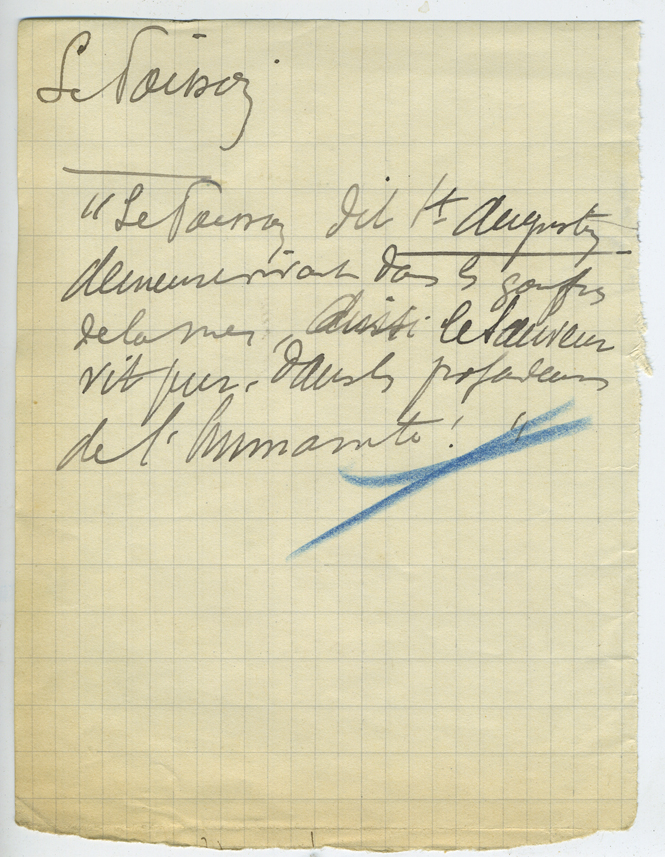 Le Poisson
"Le Poisson dit St Augustin
demeure vivant dans les gouffres
de la mer, aussi le Sauveur
vit pur, dans les profondeurs
de l'humanité! "